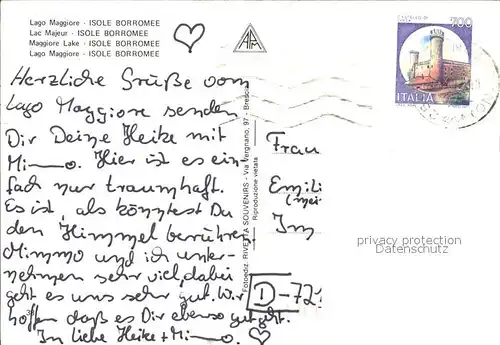 Lago Maggiore - ISOLE BORROMEE
Lac Majeur - ISOLE BORROMEE
Maggiore Lake - ISOLE BORROMEE
Lago Maggiore - ISOLE BORROMEE
Herzliche Grüße vom
Lago Maggiore senden
Dir Deine Heike mit
Mi——o. Hier ist es ein-
fach nur traumhaft.
Es ist, als könntest Du
den Himmel berühren.
Mimmo und ich unter-
nehmen sehr viel, dabei
geht es uns sehr gut. Wir
hoffen daß es Dir ebenso gut geht.
In liebe Heike + Mi——o.
Fotoediz. RIVETTA SOUVENIRS - Via Vergnano, 97 - Brescia
Riproduzione vietata
700
ITALIA
Frau
Emili
Im
D-721
privacy protection
Datenschutz